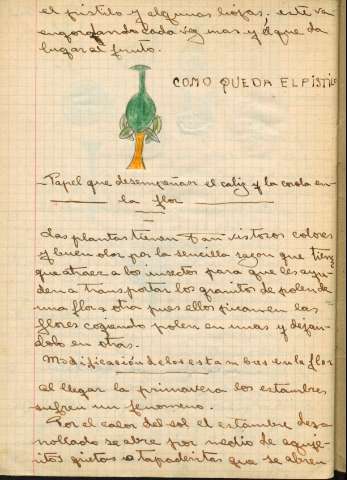 el pistilo y algunas hojas. este va
engordando cada vez mas y el que da
lugar al fruto.
COMO QUEDA EL PISTILO
- Papel que desempeñan el caliz y la corola en
la flor
Las plantas tienen tan vistozos colores
y buen olor por la sencilla razon que tiene
que atraer a los insectos para que les ayu-
den a transportar los granitos de polen de
una flor a otra pues ellos pican en las
flores cogiendo polen en unas y dejan-
dolo en otras.
Modificación de los estambres en la flor
al llegar la primavera los estambres
sufren un fenomeno.
Por el calor del sol el estambre desa
rrollado se abre por medio de aguje-
ritos grietas o tapaderitas que se abren